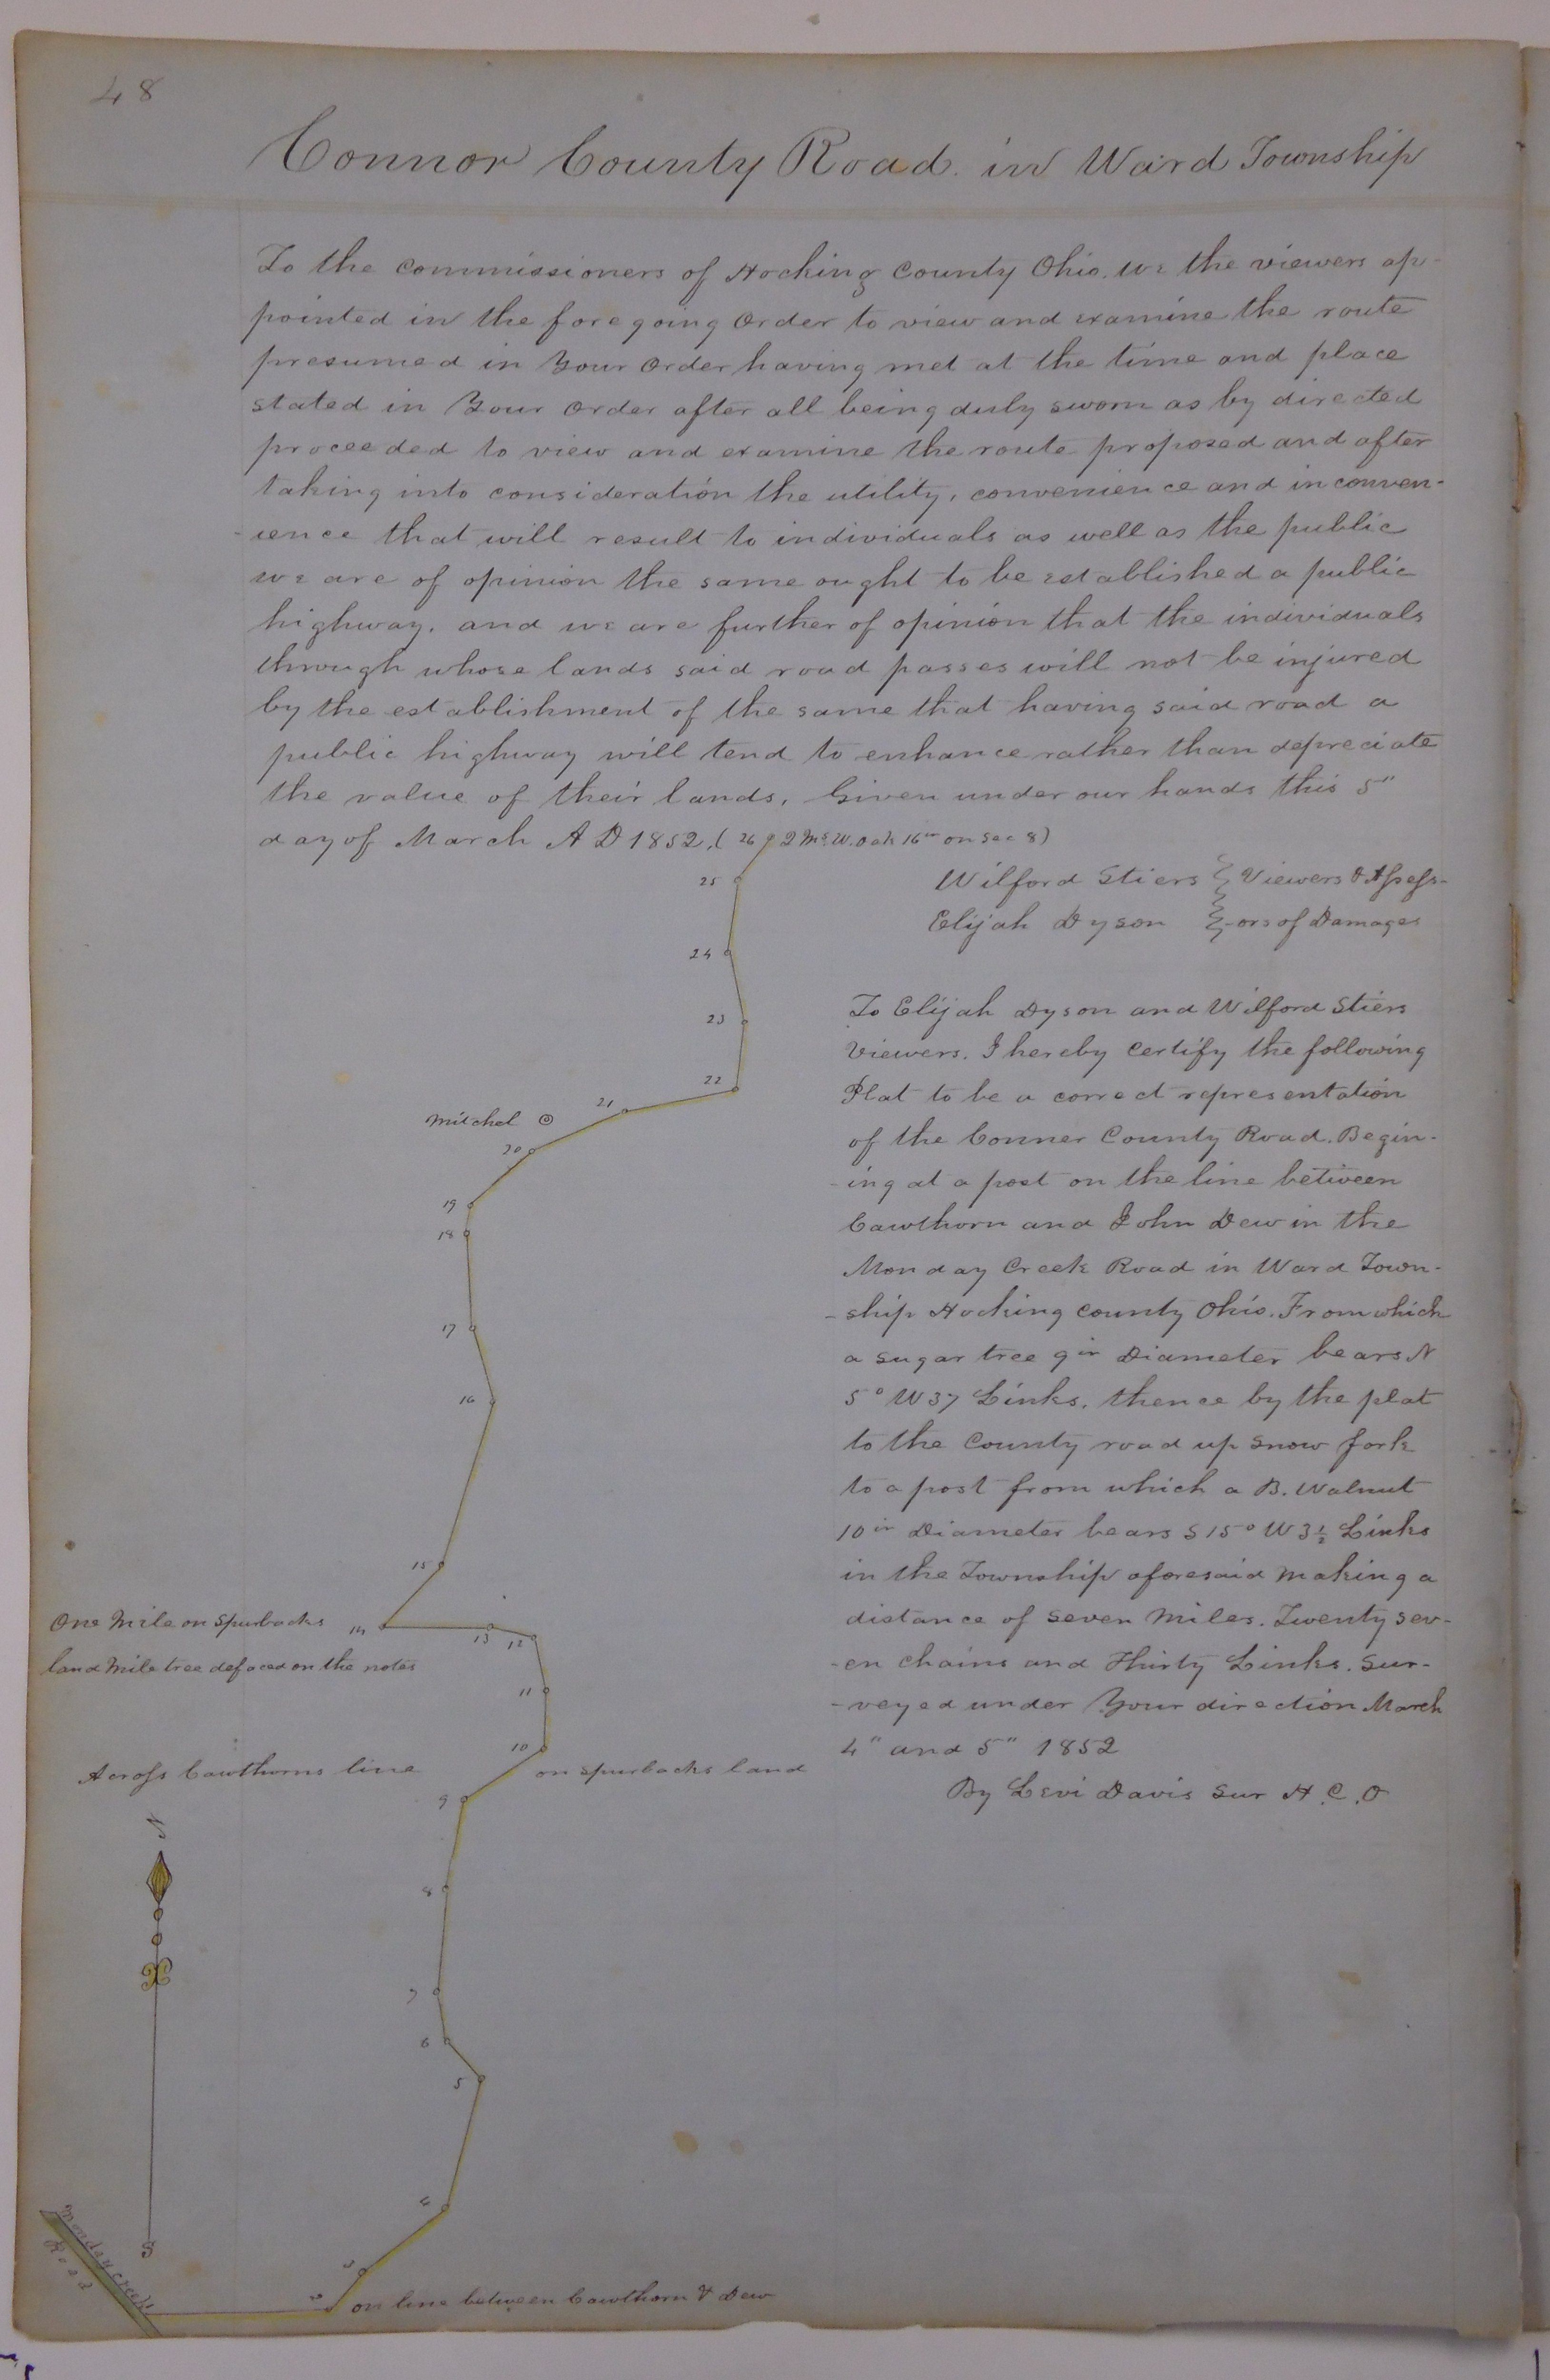 48
Connor County Road. in Ward Township
To the commissioners of Hocking County Ohio. We the viewers ap-
pointed in the foregoing Order to view and examine the route
presumed in Your Order having met at the time and place
stated in Your Order after all being duly sworn as by directed
proceeded to view and examine the route proposed and after
taking into consideration the utility, convenience and inconven-
-ience that will result to individuals as well as the public
we are of opinion the same ought to be established a public
highway. and we are further of opinion that the individuals
through whose lands said road passes will not be injured
by the establishment of the same that having said road a
public highway will tend to enhance rather than depreciate
the value of their lands. Given under our hands this 5"
day of March A D 1852. ( 26 2 Ms. W. Oak 16in on Sec 8)
Wilford Stiers } Viewers & Assess-
Elijah Dyson } -ors of Damages
25
24
23
22
21
Mitchel
20
19
18
17
16
15
To Elijah Dyson and Wilford Stiers
Viewers. I hereby Certify the following
Plat to be a correct representation
of the Conner County Road. Begin-
-ing at a post on the line between
Cawthorn and John Dew in the
Monday Creek Road in Ward Town-
-ship Hocking County Ohio. From which
a sugar tree 9in Diameter bears N
5° W 37 Links. thence by the plat
to the County road up Snow fork
to a post from which a B. Walnut
10in Diameter bears S 15° W 3½ Links
in the Township aforesaid making a
distance of Seven Miles. Twenty sev-
-en Chains and Thirty Links. Sur-
-veyed under Your direction March
4" and 5" 1852
By Levi Davis Sur H. C. O
One Mile on Spurbacks 14
13 12
land Mile tree defaced on the notes
11
10
Across Cawthorns line on Spurbacks land
9
N
8
7
6
5
4
Monday Creek
Road
S
3
2 on line between Cawthorn & Dew